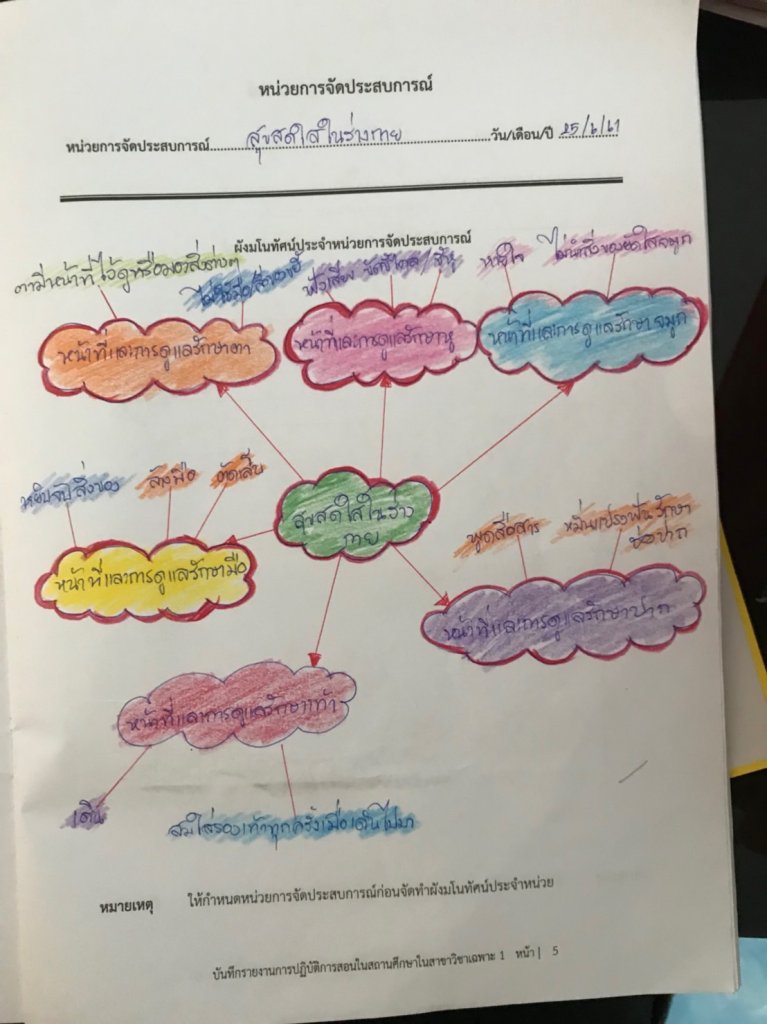 หน่วยการจัดประสบการณ์
หน่วยการจัดประสบการณ์ สุขสดใสในร่างกาย วัน/เดือน/ปี 25/6/61
ผังมโนทัศน์ประจำหน่วยการจัดประสบการณ์
ตามีหน้าที่ไว้ดูหรือมองสิ่งต่างๆ
ไม่ใช้มือสกปรกขยี้
ฟังเสียง
หายใจ
ไม่นำสิ่งของยัดใส่จมูก
หน้าที่และการดูแลรักษาตา
หน้าที่และการดูแลรักษาหู
หน้าที่และการดูแลรักษาจมูก
หยิบจับสิ่งของ
ล้างมือ
ตัดเล็บ
สุขสดใสในร่าง
กาย
พูดสื่อสาร
หมั่นแปรงฟันรักษา
ช่องปาก
หน้าที่และการดูแลรักษามือ
หน้าที่และการดูแลรักษาปาก
หน้าที่และการดูแลรักษาเท้า
เดิน
สวมใส่รองเท้าทุกครั้งเมื่อเดินไปมา
หมายเหตุ ให้กำหนดหน่วยการจัดประสบการณ์ก่อนจัดทำผังมโนทัศน์ประจำหน่วย
บันทึกรายงานการปฏิบัติการสอนในสถานศึกษาในสาขาวิชาเฉพาะ 1 หน้า | 5